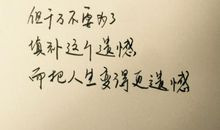 但千万不要为了
填补这个遗憾
而把人生变得更遗憾